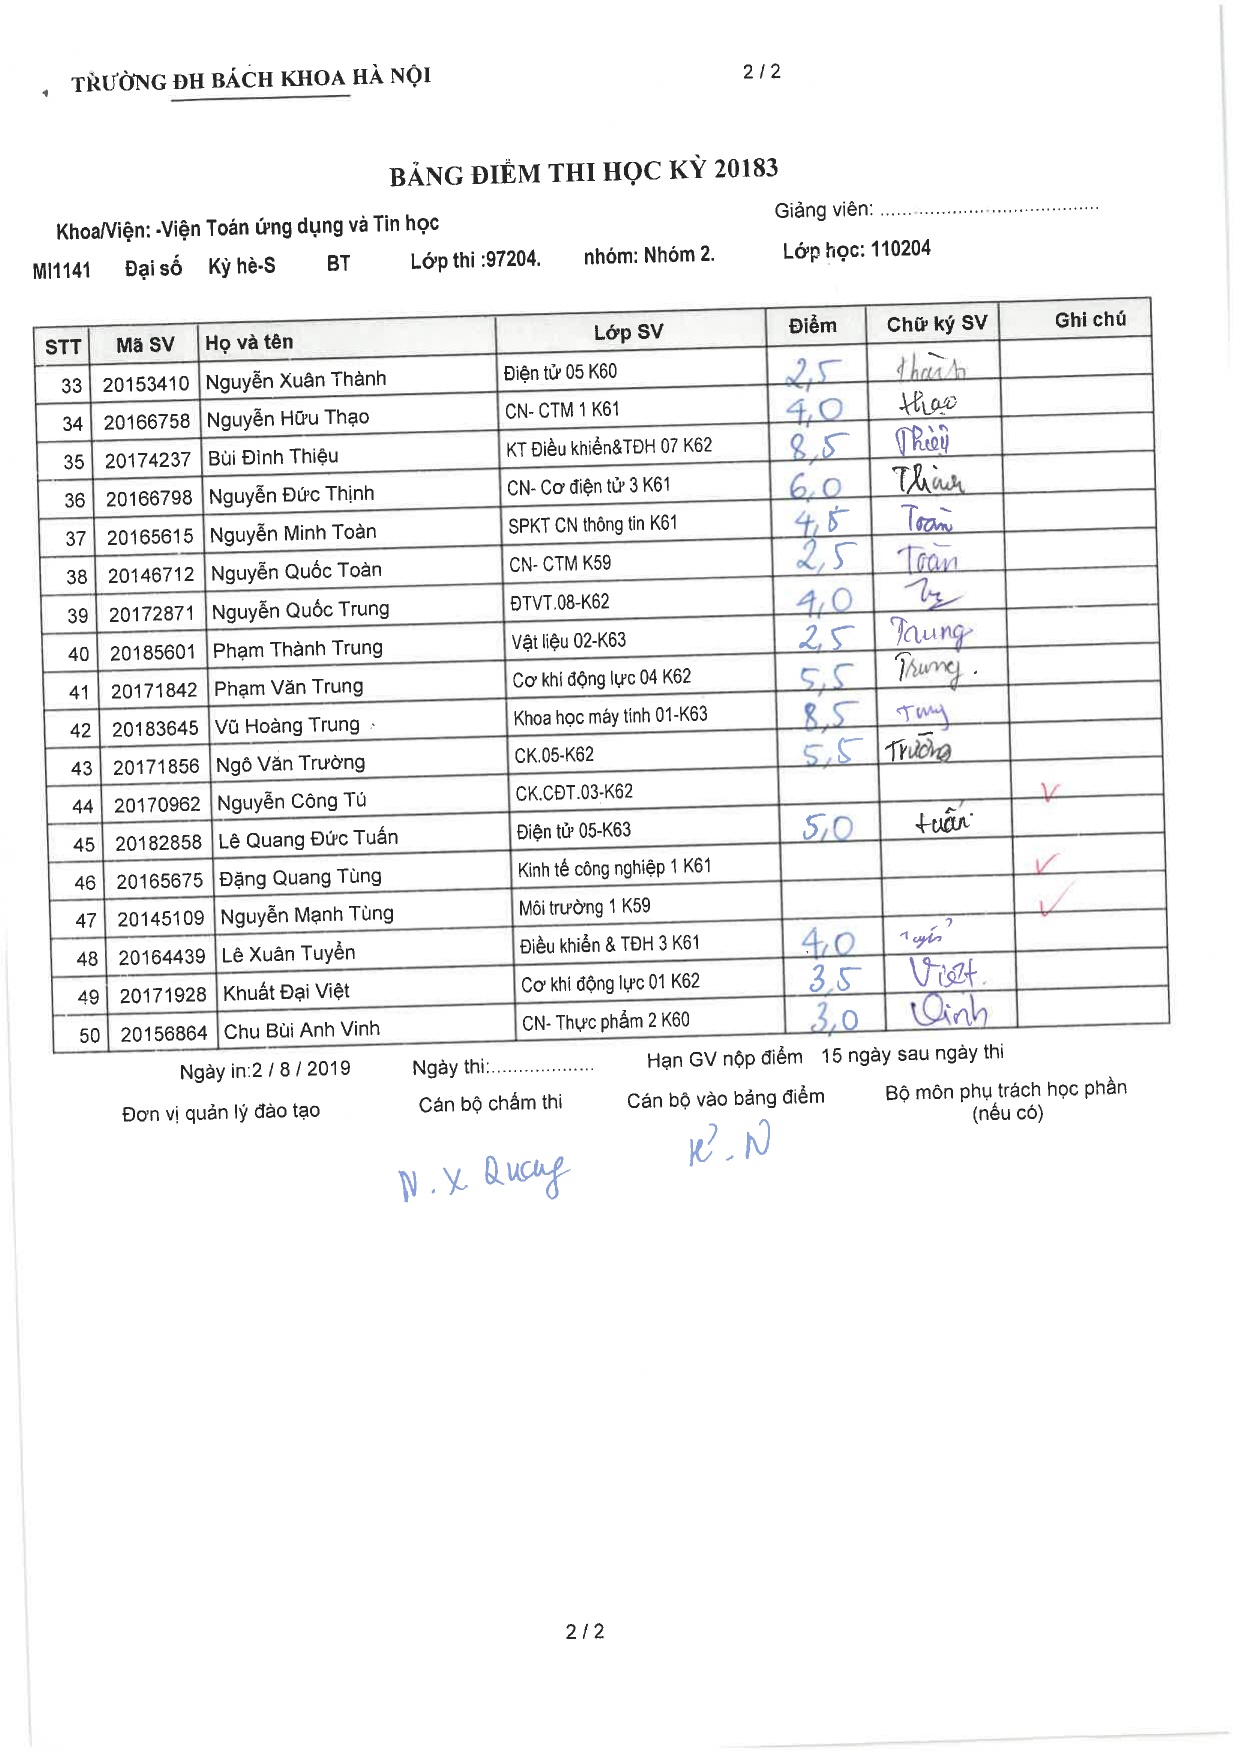 TRƯỜNG ĐH BÁCH KHOA HÀ NỘI 2 / 2
BẢNG ĐIỂM THI HỌC KỲ 20183
Khoa/Viện: -Viện Toán ứng dụng và Tin học Giảng viên: ........................................
MI1141 Đại số Kỳ hè-S BT Lớp thi :97204. nhóm: Nhóm 2. Lớp học: 110204
STT Mã SV Họ và tên Lớp SV Điểm Chữ ký SV Ghi chú
33 20153410 Nguyễn Xuân Thành Điện tử 05 K60 2,5 Thành
34 20166758 Nguyễn Hữu Thạo CN- CTM 1 K61 4,0 thạo
35 20174237 Bùi Đình Thiệu KT Điều khiển&TĐH 07 K62 8,5 Thiệu
36 20166798 Nguyễn Đức Thịnh CN- Cơ điện tử 3 K61 6,0 Thịnh
37 20165615 Nguyễn Minh Toàn SPKT CN thông tin K61 4,5 Toàn
38 20146712 Nguyễn Quốc Toàn CN- CTM K59 2,5 Toàn
39 20172871 Nguyễn Quốc Trung ĐTVT.08-K62 4,0
40 20185601 Phạm Thành Trung Vật liệu 02-K63 2,5 Trung
41 20171842 Phạm Văn Trung Cơ khí động lực 04 K62 5,5 Trung.
42 20183645 Vũ Hoàng Trung Khoa học máy tính 01-K63 8,5 Trung
43 20171856 Ngô Văn Trường CK.05-K62 5,5 Trường
44 20170962 Nguyễn Công Tú CK.CĐT.03-K62 ✓
45 20182858 Lê Quang Đức Tuấn Điện tử 05-K63 5,0 tuấn
46 20165675 Đặng Quang Tùng Kinh tế công nghiệp 1 K61 ✓
47 20145109 Nguyễn Mạnh Tùng Môi trường 1 K59 ✓
48 20164439 Lê Xuân Tuyển Điều khiển & TĐH 3 K61 4,0 Tuyển
49 20171928 Khuất Đại Việt Cơ khí động lực 01 K62 3,5 Việt.
50 20156864 Chu Bùi Anh Vinh CN- Thực phẩm 2 K60 3,0 Vinh
Ngày in:2 / 8 / 2019 Ngày thi:................... Hạn GV nộp điểm 15 ngày sau ngày thi
Đơn vị quản lý đào tạo Cán bộ chấm thi Cán bộ vào bảng điểm Bộ môn phụ trách học phần
(nếu có)
N. X Quang
2 / 2